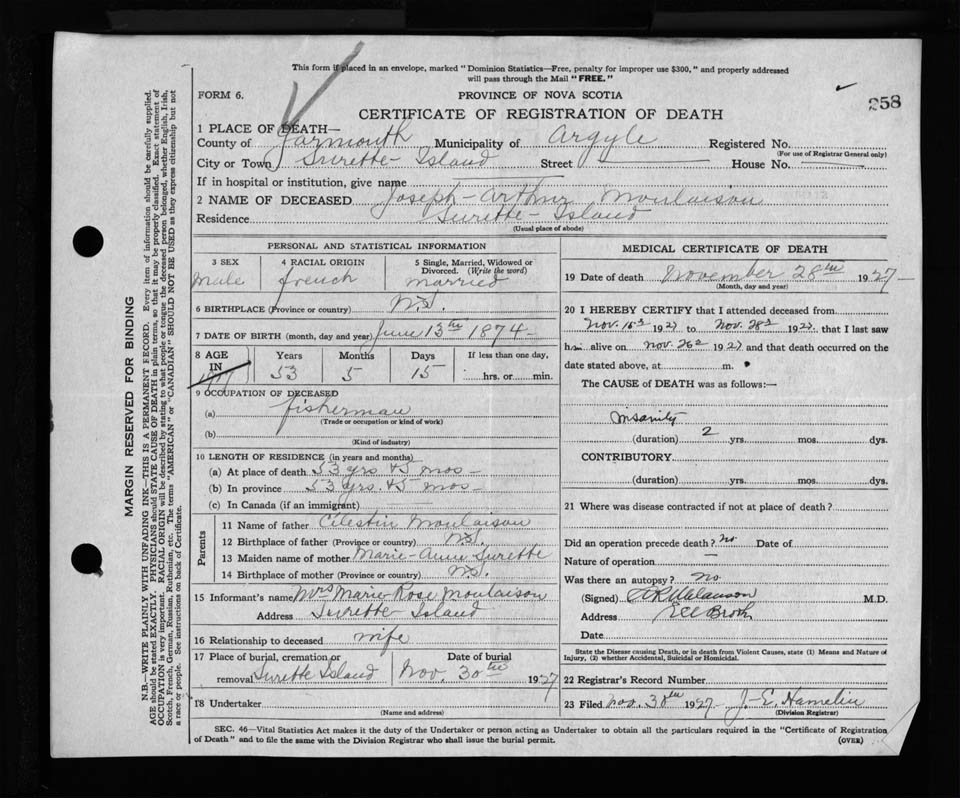 This form if placed in an envelope, marked "Dominion Statistics—Free, penalty for improper use $300," and properly addressed
will pass through the Mail "FREE."
FORM 6.
PROVINCE OF NOVA SCOTIA
258
CERTIFICATE OF REGISTRATION OF DEATH
1 PLACE OF DEATH—
County of Yarmouth Municipality of Argyle Registered No.
(For use of Registrar General only)
City or Town Surette-Island Street House No.
If in hospital or institution, give name
2 NAME OF DECEASED Joseph-Arthur Moulaison
Residence Surette-Island
(Usual place of abode)
PERSONAL AND STATISTICAL INFORMATION
3 SEX 4 RACIAL ORIGIN 5 Single, Married, Widowed or Divorced. (Write the word)
Male french married
6 BIRTHPLACE (Province or country) N.S.
7 DATE OF BIRTH (month, day and year) June 13th 1874-
8 AGE IN Years Months Days If less than one day,
53 5 15 hrs. or min.
9 OCCUPATION OF DECEASED
(a) fisherman
(Trade or occupation or kind of work)
(b)
(Kind of industry)
10 LENGTH OF RESIDENCE (in years and months)
(a) At place of death 53 yrs +5 mos-
(b) In province 53 yrs. +5 mos-
(c) In Canada (if an immigrant)
Parents
11 Name of father Celestin Moulaison
12 Birthplace of father (Province or country) N.S.
13 Maiden name of mother Marie-Anne Surette
14 Birthplace of mother (Province or country) N.S.
15 Informant's name Mrs Marie-Rose Moulaison
Address Surette-Island
16 Relationship to deceased wife
17 Place of burial, cremation or removal Surette Island Date of burial Nov. 30th 1927
18 Undertaker
(Name and address)
MEDICAL CERTIFICATE OF DEATH
19 Date of death November 28th 1927-
(Month, day and year)
20 I HEREBY CERTIFY that I attended deceased from
Nov. 1927 to Nov. 28 1927 that I last saw
him alive on Nov. 26 1927 and that death occurred on the
date stated above, at m.
The CAUSE of DEATH was as follows:—
Insanity
(duration) 2 yrs. mos. dys.
CONTRIBUTORY
(duration) yrs. mos. dys.
21 Where was disease contracted if not at place of death?
Did an operation precede death? No Date of
Nature of operation —
Was there an autopsy? no
(Signed) M.D.
Address Eel Brook
Date
State the Disease causing Death, or in death from Violent Causes, state (1) Means and Nature of
Injury, (2) whether Accidental, Suicidal or Homicidal.
22 Registrar's Record Number
23 Filed Nov. 30th 1927 J-E. Hamelin
(Division Registrar)
SEC. 46—Vital Statistics Act makes it the duty of the Undertaker or person acting as Undertaker to obtain all the particulars required in the "Certificate of Registration
of Death" and to file the same with the Division Registrar who shall issue the burial permit.
(OVER)
MARGIN RESERVED FOR BINDING
N.B.—WRITE PLAINLY WITH UNFADING INK—THIS IS A PERMANENT RECORD. Every item of information should be carefully supplied.
AGE should be stated EXACTLY. PHYSICIANS should STATE CAUSE OF DEATH in plain terms, so that it may be properly classified. Exact statement of
OCCUPATION is very important. RACIAL ORIGIN will be described by stating to what people or tongue the deceased person belonged, whether English, Irish,
Scotch, French, German, Russian, Ruthenian, etc. The terms "AMERICAN" or "CANADIAN" SHOULD NOT BE USED as they express citizenship but not
a race or people. See instructions on back of Certificate.